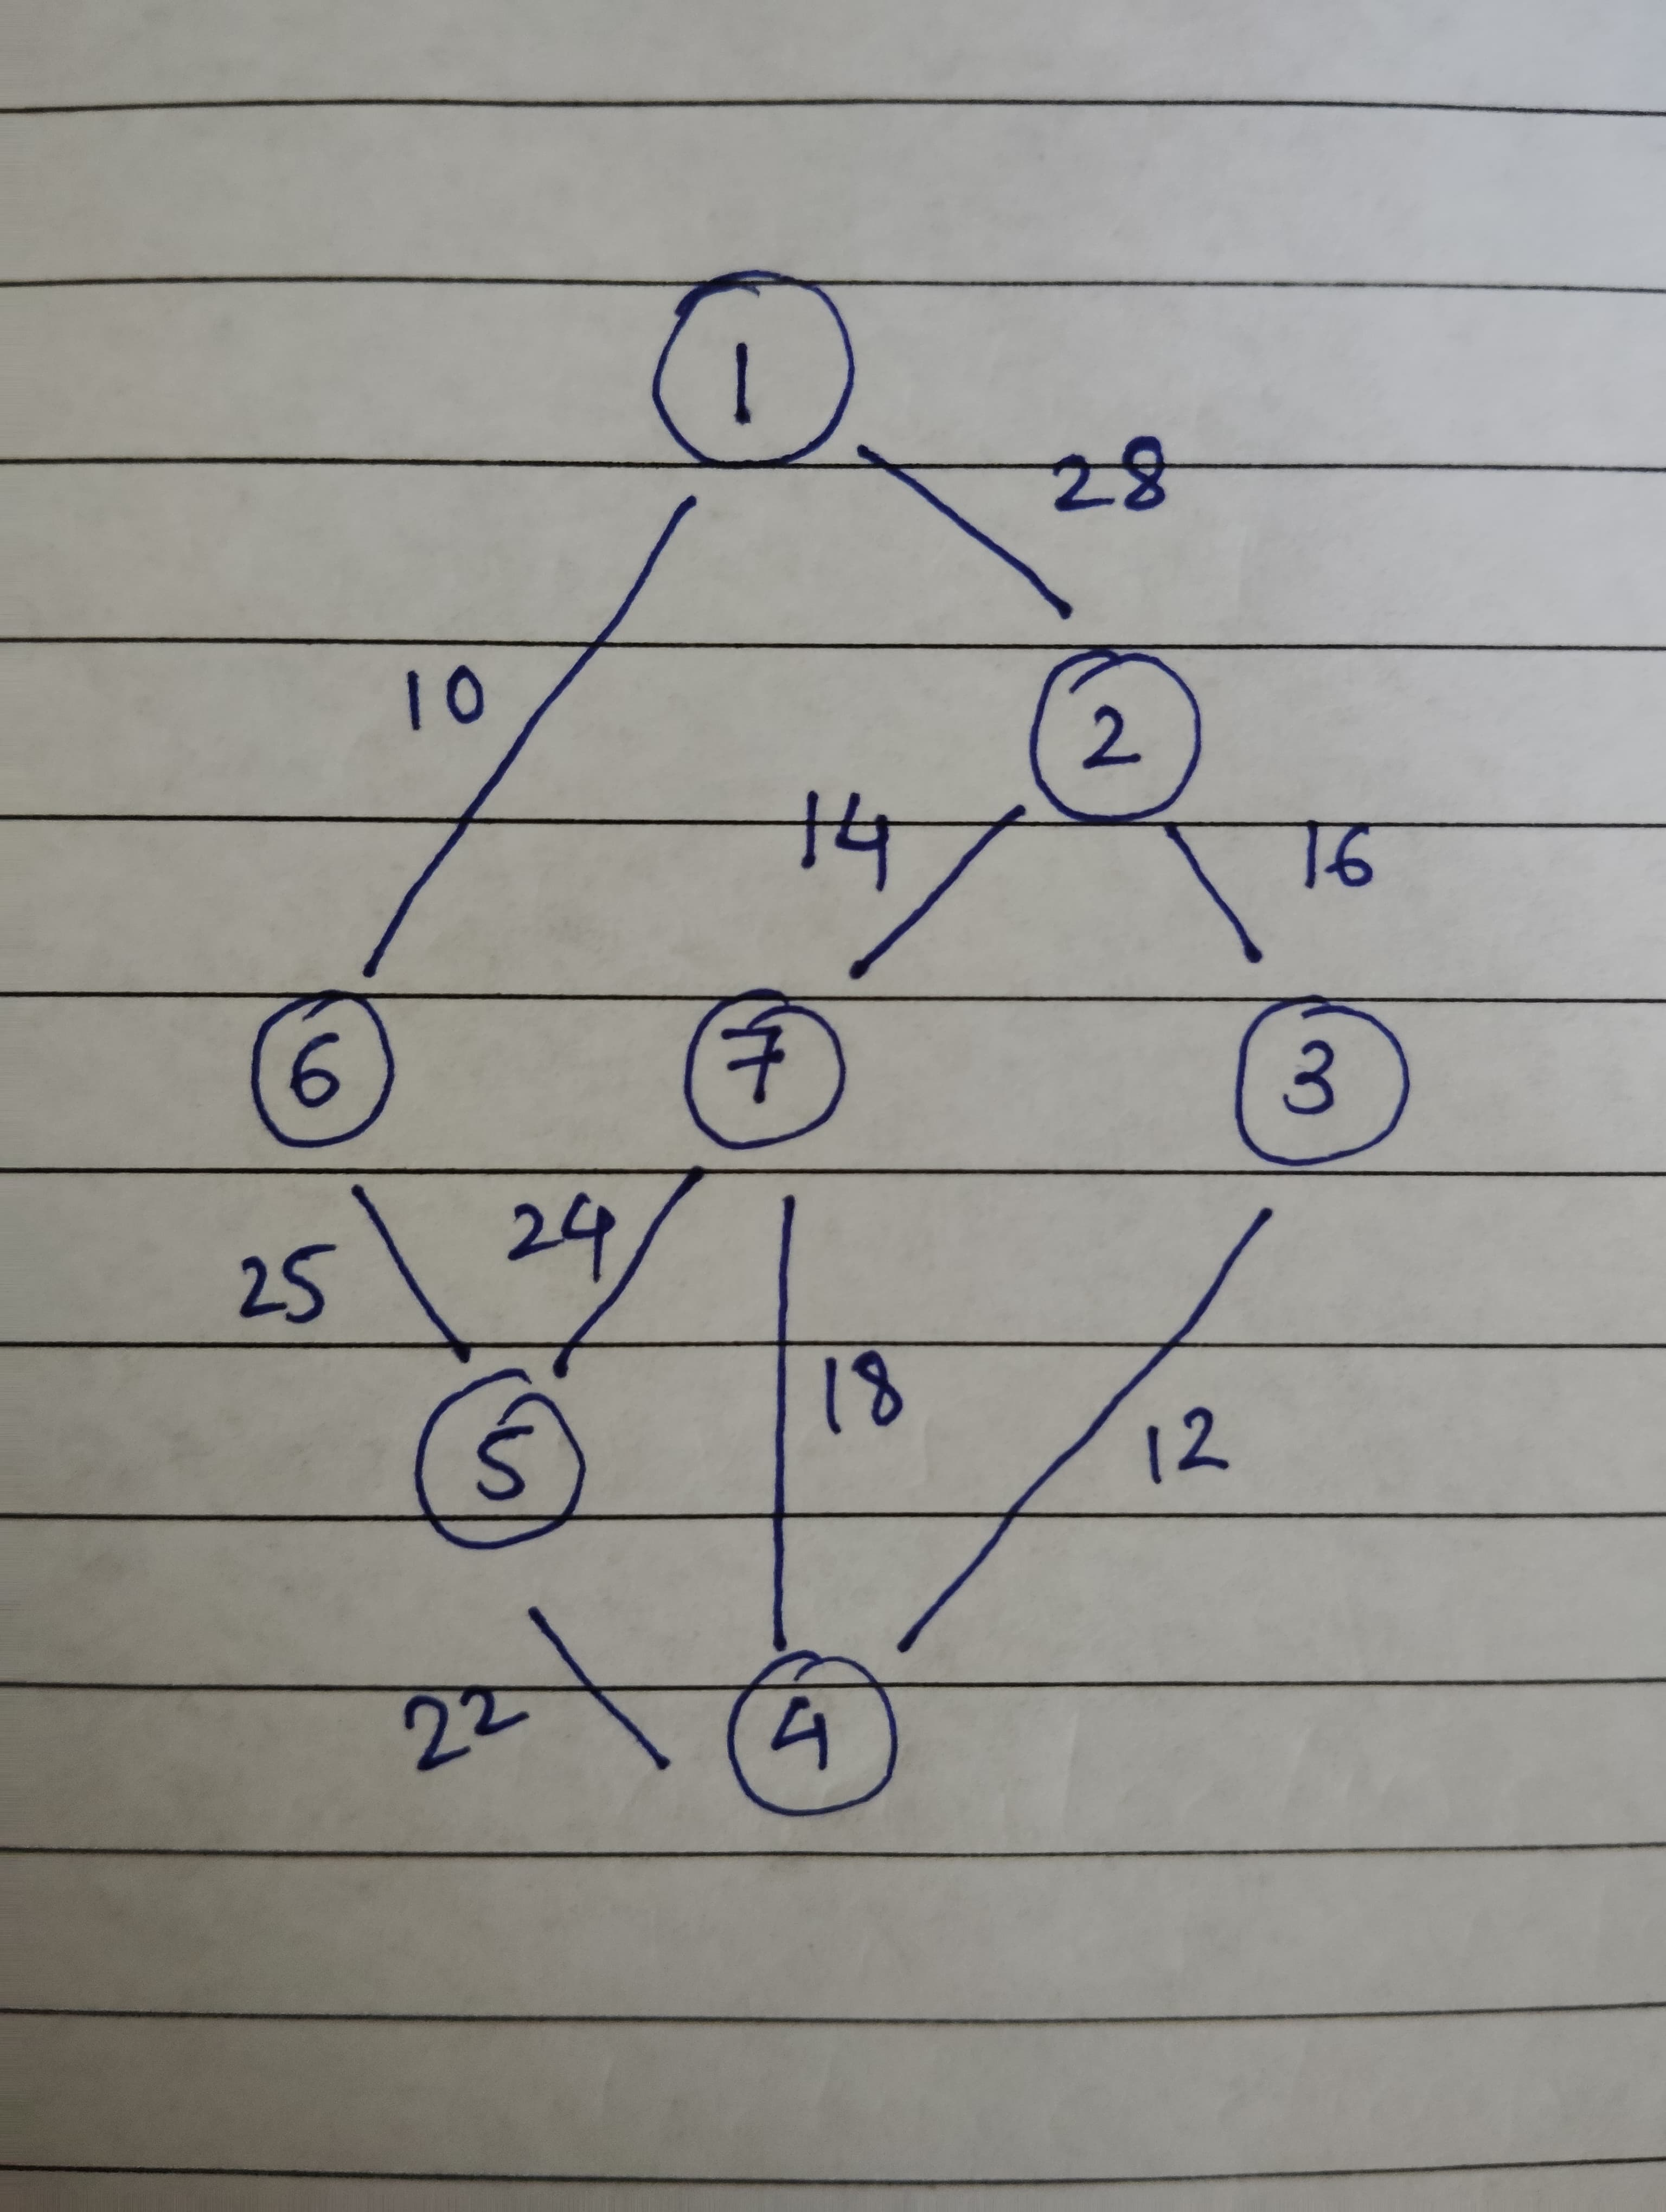 1
28
10
2
14 16
6 7 3
25 24
18
12
5
22 4